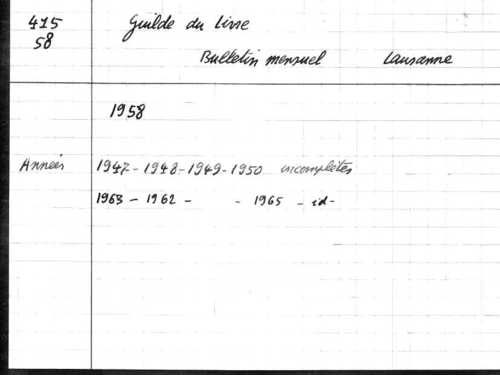 415 Guilde du Livre
58
Bulletin mensuel Lausanne
1958
Années 1947-1948-1949-1950 incomplètes
1963 - 1962 - - 1965 - id-